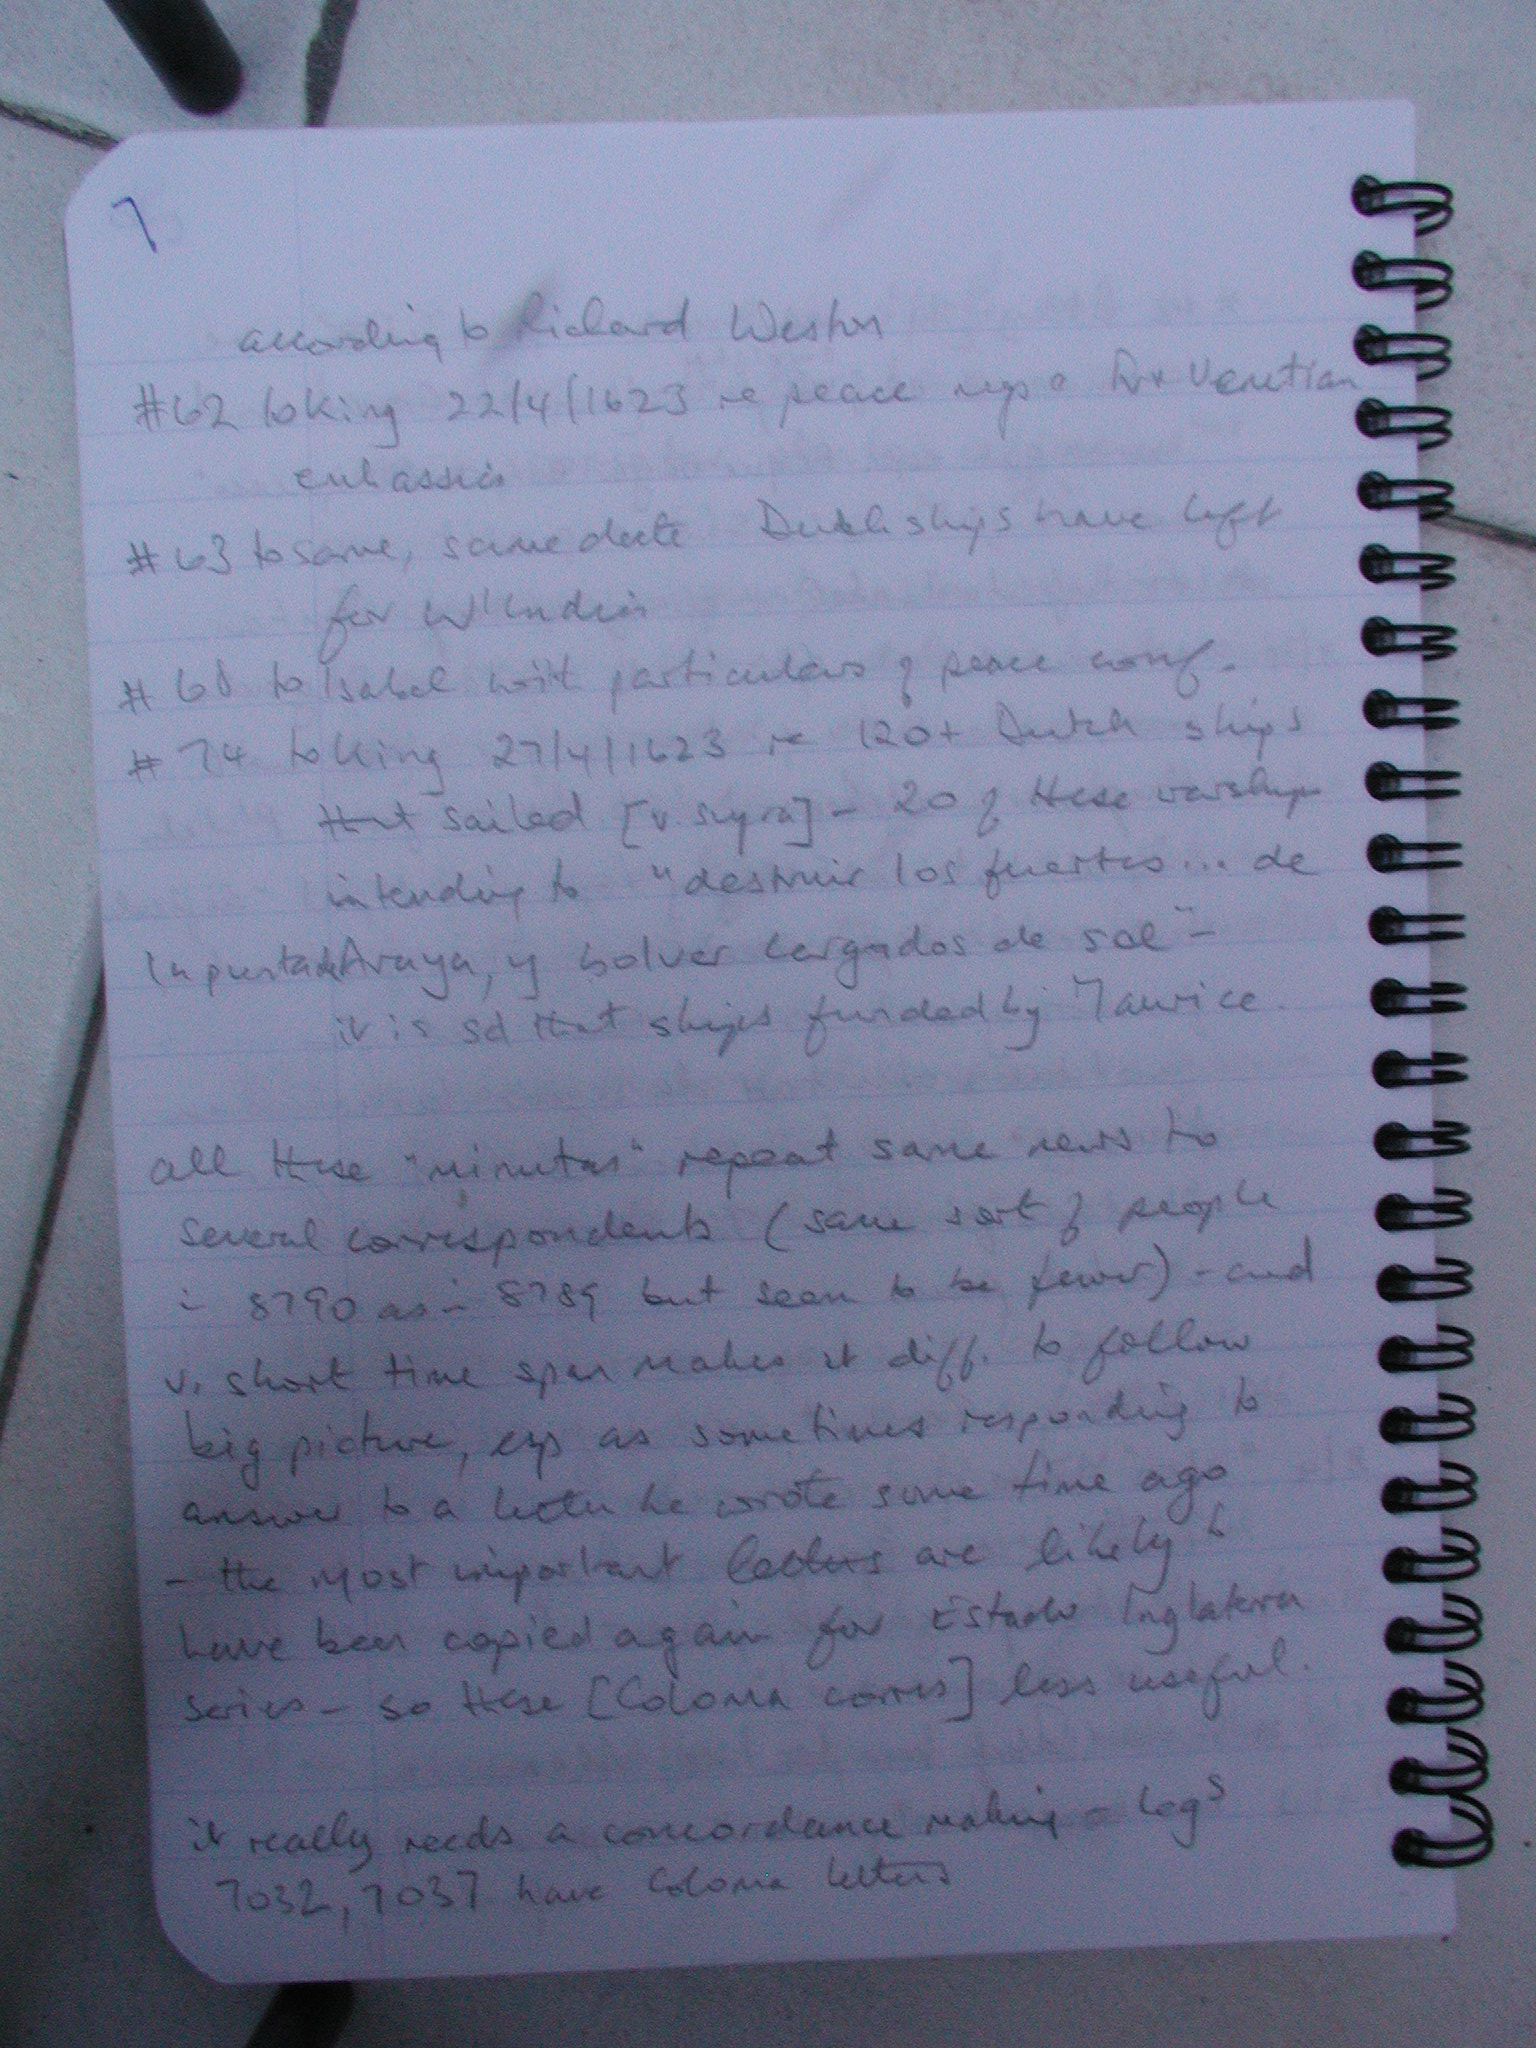 7
according to Richard Weston
#62 to King 22/4/1623 re peace negs & Fr & Venetian
embassies
#63 to same, same date Dutch ships have left
for W'Indies
#68 to Isabel with particulars of peace conf.
#74 to King 27/4/1623 re 120+ Dutch ships
that sailed [v. supra] - 20 of these warships
intending to "destruir los fuertes... de
la punta de Araya, y bolver cargados de sal" -
it is sd that ships funded by Maurice.
all these "minutas" repeat same news to
several correspondents (same sort of people
in 8790 as in 8789 but seem to be fewer) - and
v. short time span makes it diff. to follow
big picture, esp as sometimes responding to
answer to a letter he wrote some time ago
- the most important letters are likely to
have been copied again for Estado Inglaterra
series - so these [Coloma corres] less useful.
it really needs a concordance making - legs
7032, 7037 have Coloma letters